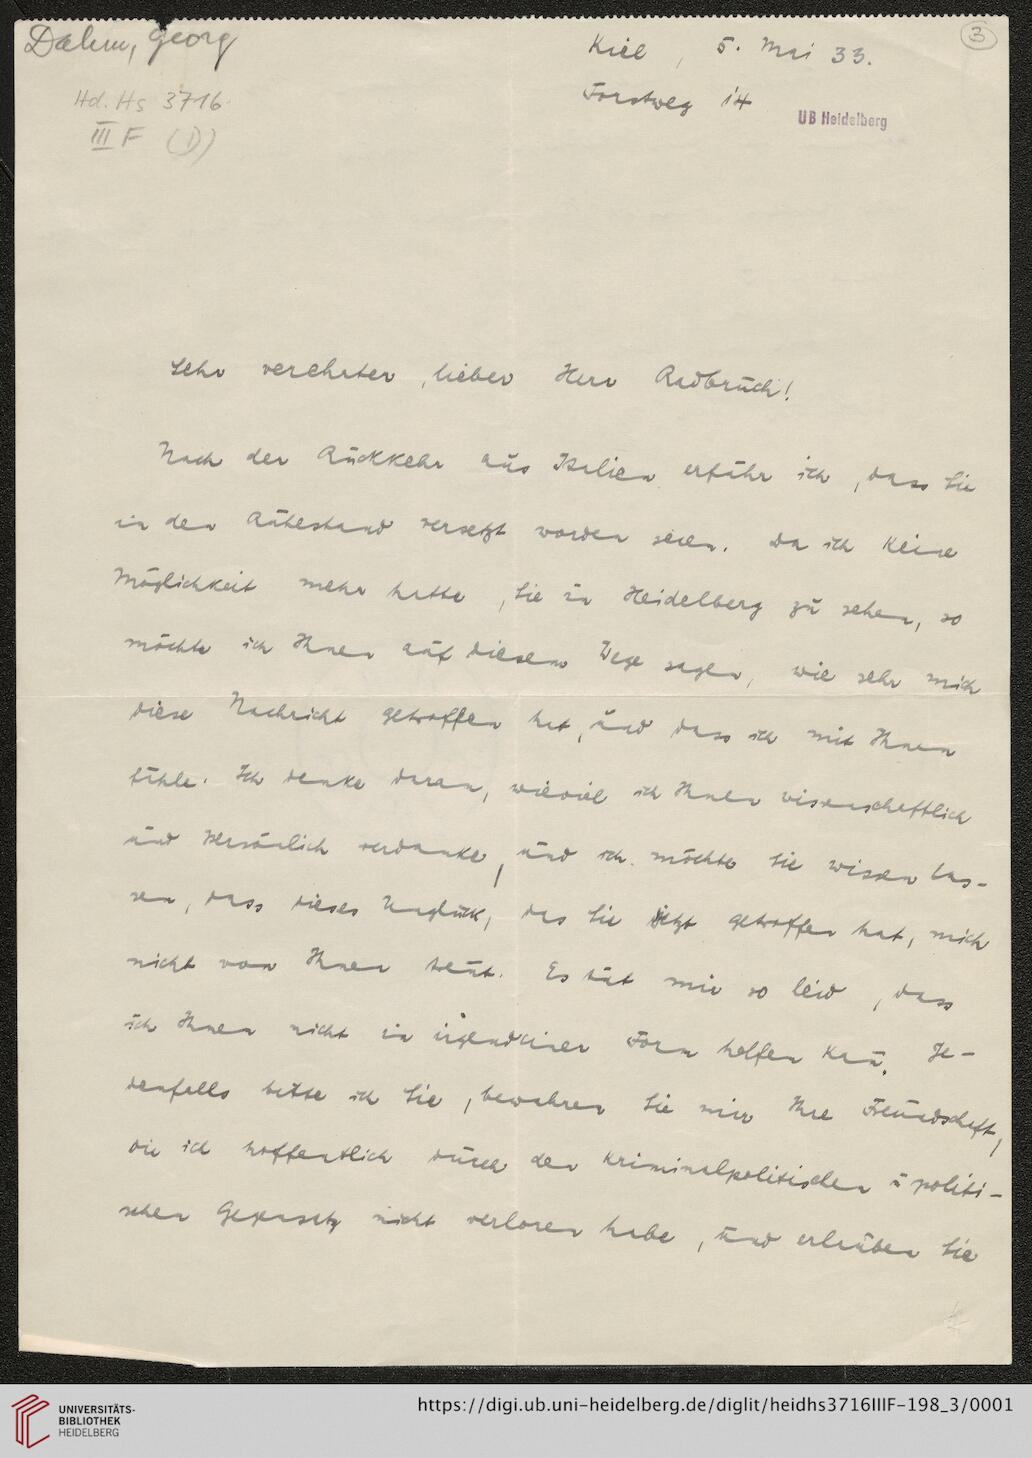 Dahm, Georg
Hd. Hs 3716
III F (1)
3
Kiel, 5. Mai 33.
Forstweg 14
UB Heidelberg
Sehr verehrter, lieber Herr Radbruch!
Nach der Rückkehr aus Italien erfuhr ich, dass Sie
in den Ruhestand versetzt worden seien. Da ich keine
Möglichkeit mehr hatte, Sie in Heidelberg zu sehen, so
möchte ich Ihnen auf diesem Wege sagen, wie sehr mich
diese Nachricht getroffen hat, und dass ich mit Ihnen
fühle. Ich denke daran, wieviel ich Ihnen wissenschaftlich
und persönlich verdanke, und ich möchte Sie wissen las-
sen, dass dieses Unglück, das Sie jetzt getroffen hat, mich
nicht von Ihnen trennt. Es tut mir so leid, dass
ich Ihnen nicht in irgendeiner Form helfen kann. Je-
denfalls bitte ich Sie, bewahren Sie mir Ihre Freundschaft,
die ich hoffentlich durch den kriminalpolitischen u politi-
schen Gegensatz nicht verloren habe, und erlauben Sie
UNIVERSITÄTS-
BIBLIOTHEK
HEIDELBERG
https://digi.ub.uni-heidelberg.de/diglit/heidhs3716IIIF-198_3/0001